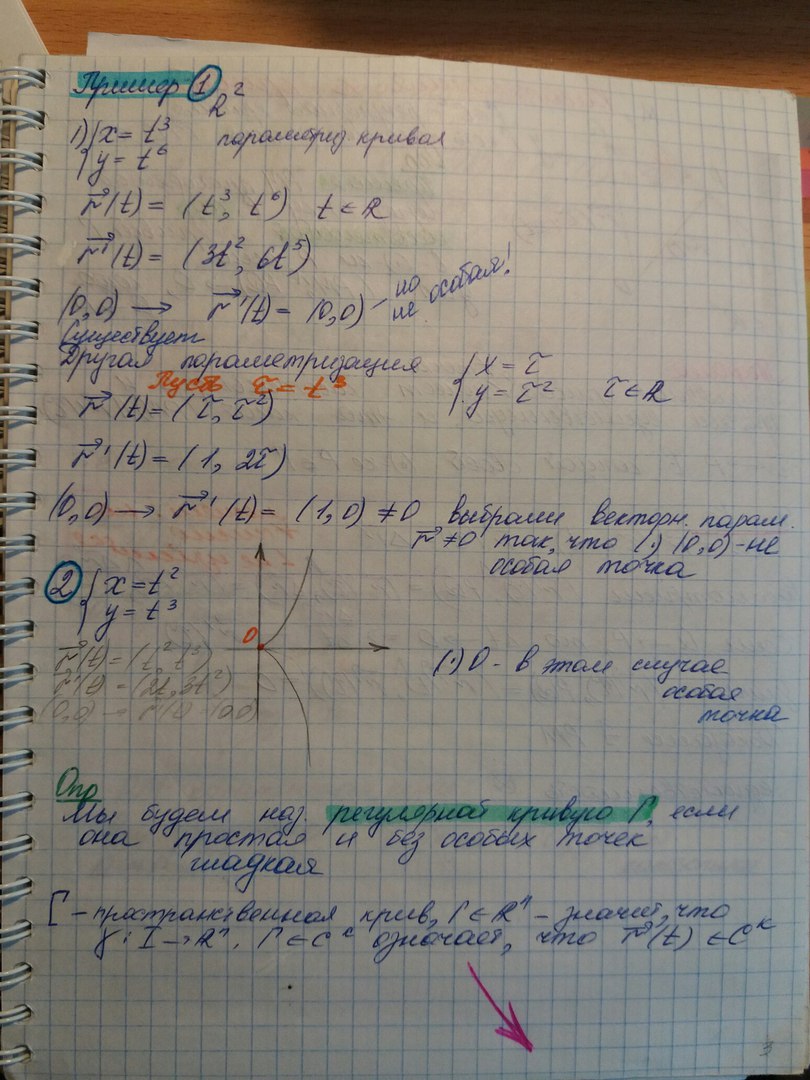 Пример 1
R²
1) { x = t³ параметриз кривая
{ y = t⁶
r⃗(t) = (t³, t⁶) t ∈ R
r⃗'(t) = (3t², 6t⁵)
(0,0) → r⃗'(t) = (0,0) – но не особая!
Существует
Другая параметризация { x = τ
Пусть τ = t³ { y = τ² τ ∈ R
r⃗(t) = (τ, τ²)
r⃗'(t) = (1, 2τ)
(0,0) → r⃗'(t) = (1,0) ≠ 0 выбрали векторн. парам.
r⃗ ≠ 0 так, что (·) (0,0) – не
особая точка
2 { x = t²
{ y = t³
0
r⃗(t) = (t² t³)
r⃗'(t) = (2t, 3t²)
(0,0) → r⃗'(t) = (0,0)
(·) O – в этом случае
особая
точка
Опр
Мы будем наз. регулярной кривую Г, если
она простая и без особых точек
гладкая
Г – пространственная крив, Г ∈ Rⁿ – значит, что
γ: I → Rⁿ. Г ∈ Cᵏ означает, что r⃗(t) ∈ Cᵏ
3